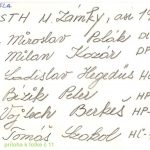 SLA
STH N. Zámky, an 1
Miroslav Polák D
Milan Kozár DP
Ladislav Hegedüs HC
Bízik Peter HP-
Vojtech Berkeš HP-
Tomáš Sokol HC-
príloha k fotke č. 11